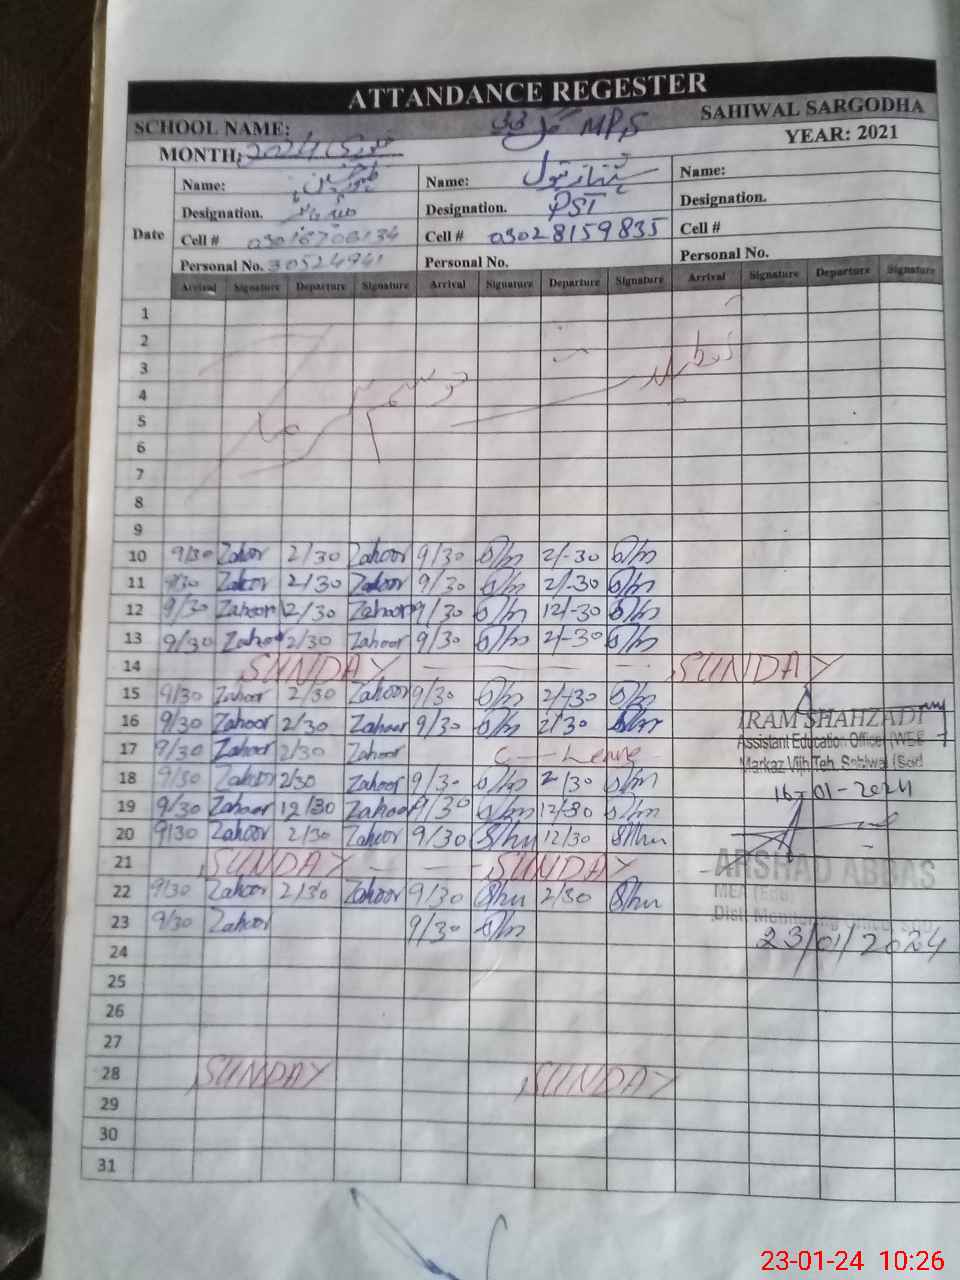 ATTANDANCE REGESTER
SCHOOL NAME: MPS SAHIWAL SARGODHA
MONTH: جنوری 2024 YEAR: 2021
Name: ظہور حسین Name: Name:
Designation. Designation. PST Designation.
Date Cell # Cell # 03028159835 Cell #
Personal No. 30524941 Personal No. Personal No.
Arrival Signature Departure Signature Arrival Signature Departure Signature Arrival Signature Departure Signature
1
2
3
4
5
6
7
8
9
10 9/30 Zahoor 2/30 Zahoor 9/30 2/-30
11 9/30 Zahoor 2/30 Zahoor 9/30 2/-30
12 9/30 Zahoor 12/30 Zahoor 9/30 12/-30
13 9/30 Zahoor 2/30 Zahoor 9/30 2/-30
14 SUNDAY SUNDAY
15 9/30 Zahoor 2/30 Zahoor 9/30 2/-30
16 9/30 Zahoor 2/30 Zahoor 9/30 2/30 IRAM SHAHZADI
17 9/30 Zahoor 2/30 Zahoor C - Leave Assistant Education Officer (WEE
Markaz Vijh Teh. Sahiwal (Sgd)
18 9/30 Zahoor 2/30 Zahoor 9/30 2/30 16-01-2024
19 9/30 Zahoor 12/30 Zahoor 9/30 12/30
20 9/30 Zahoor 2/30 Zahoor 9/30 12/30
21 SUNDAY SUNDAY ARSHAD ABBAS
22 9/30 Zahoor 2/30 Zahoor 9/30 2/30 MEA
23 9/30 Zahoor 9/30 Distt Monitoring
24 23/01/2024
25
26
27
28 SUNDAY SUNDAY
29
30
31
23-01-24 10:26